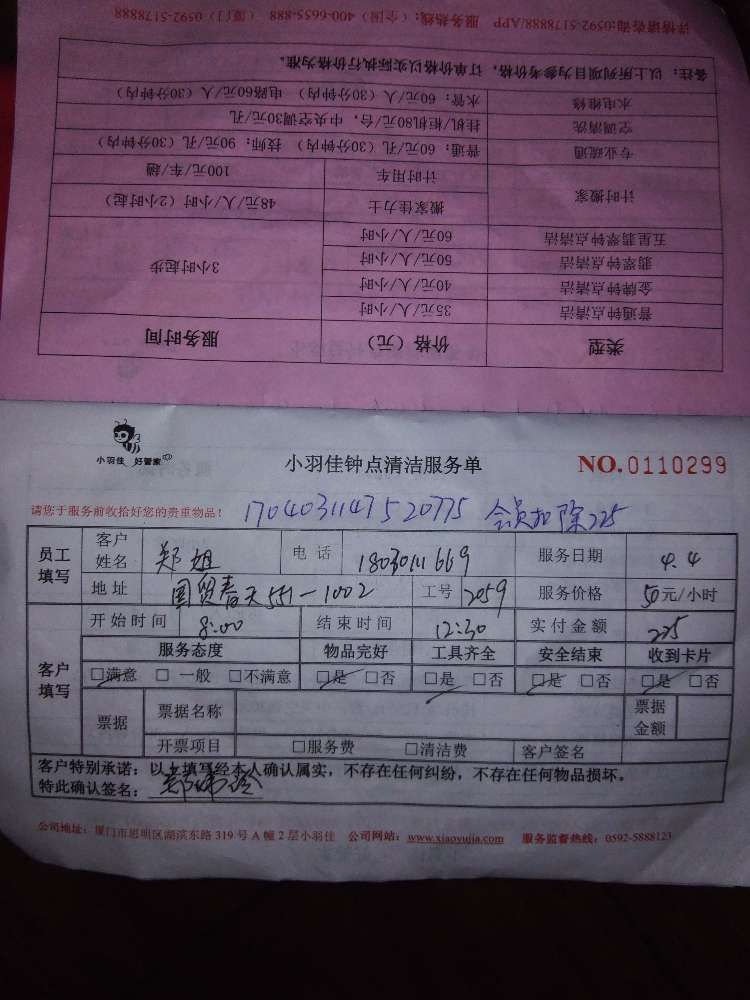 类型 价格（元） 服务时间
普通钟点清洁 35元/人/小时 3小时起步
金牌钟点清洁 40元/人/小时
翡翠钟点清洁 50元/人/小时
五星翡翠钟点清洁 60元/人/小时
计时搬家 搬家佳力士 48元/人/小时（2小时起）
计时用车 100元/车/趟
专业疏通 普通：60元/孔（30分钟内） 技师：90元/孔（30分钟内）
空调清洗 挂机/柜机80元/台，中央空调30元/孔
水电维修 水管：60元/人（30分钟内） 电路60元/人（30分钟内）
备注：以上所列项目为参考价格，订单价格以实际执行价格为准。
详情请咨询:0592-5178888/APP 服务热线：（全国）400-6655-888 （厦门）0592-5178888
小羽佳 好管家
小羽佳钟点清洁服务单 NO.0110299
请您于服务前收拾好您的贵重物品！ 1704031147520775 会员扣除225
员工填写 客户姓名 郑姐 电话 18030111669 服务日期 4.4
地址 国贸春天551-1002 工号 2059 服务价格 50元/小时
客户填写 开始时间 8:00 结束时间 12:30 实付金额 225
服务态度 物品完好 工具齐全 安全结束 收到卡片
□满意 □一般 □不满意 □是 □否 □是 □否 □是 □否 □是 □否
票据 票据名称 票据金额
开票项目 □服务费 □清洁费 客户签名
客户特别承诺：以上填写经本人确认属实，不存在任何纠纷，不存在任何物品损坏。
特此确认签名：
公司地址：厦门市思明区湖滨东路319号A幢2层小羽佳 公司网站：www.xiaoyujia.com 服务监督热线：0592-5888123